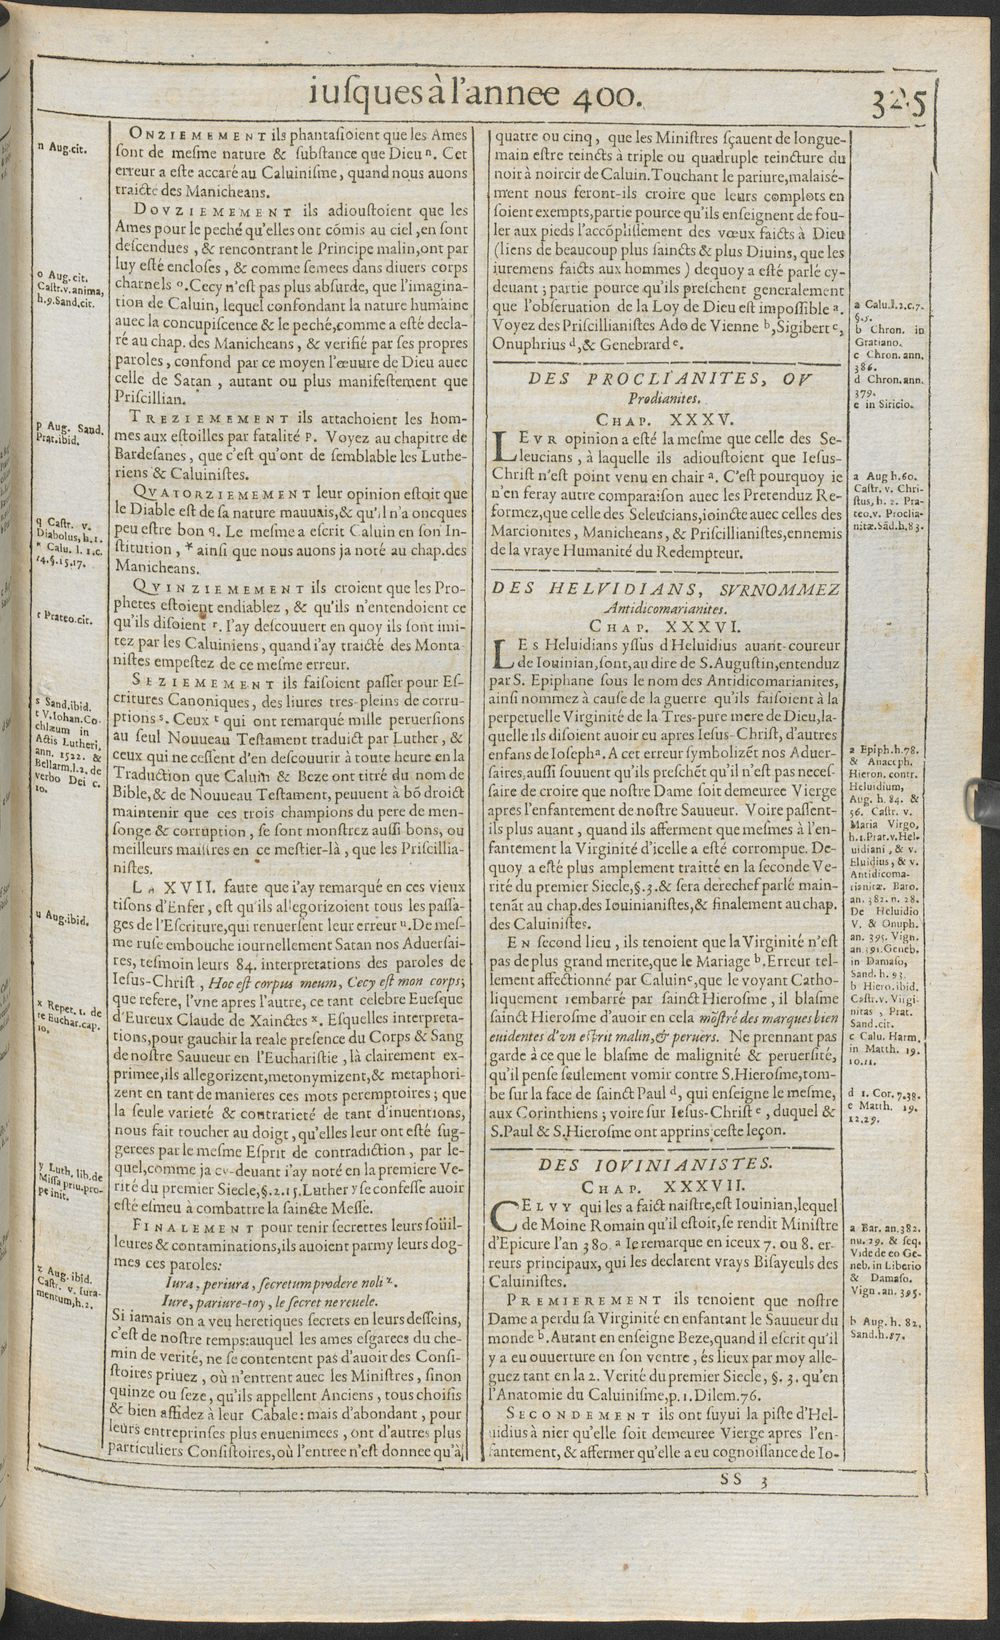 iuſques à l'annee 400.
325
n Aug.cit.
ONZIEMEMENT ils phantaſioient que les Ames
ſont de meſme nature & ſubſtance que Dieu n. Cet
erreur a eſte accaré au Caluiniſme, quand nous auons
traicté des Manicheans.
DOVZIEMEMENT ils adiouſtoient que les
Ames pour le peché qu'elles ont cómis au ciel, en ſont
deſcendues, & rencontrant le Principe malin, ont par
luy eſté encloſes, & comme ſemees dans diuers corps
charnels o. Cecy n'eſt pas plus abſurde, que l'imagina-
tion de Caluin, lequel confondant la nature humaine
auec la concupiſcence & le peché, comme a eſté decla-
ré au chap. des Manicheans, & verifié par ſes propres
paroles, confond par ce moyen l'œuure de Dieu auec
celle de Satan, autant ou plus manifeſtement que
Priſcillian.
o Aug. cit.
Caſtr.v.anima,
h.9.Sand.cit.
TREZIEMEMENT ils attachoient les hom-
mes aux eſtoilles par fatalité p. Voyez au chapitre de
Bardeſanes, que c'eſt qu'ont de ſemblable les Luthe-
riens & Caluiniſtes.
p Aug. Sand.
Prat.ibid.
QVATORZIEMEMENT leur opinion eſtoit que
le Diable eſt de ſa nature mauuais, & qu'il n'a oncques
peu eſtre bon q. Le meſme a eſcrit Caluin en ſon In-
ſtitution, * ainſi que nous auons ja noté au chap. des
Manicheans.
q Caſtr. v.
Diabolus, h.1.
* Calu. l. 1.c.
14.§.15.17.
QVINZIEMEMENT ils croient que les Pro-
phetes eſtoient endiablez, & qu'ils n'entendoient ce
qu'ils diſoient r. I'ay deſcouuert en quoy ils ſont imi-
tez par les Caluiniens, quand i'ay traicté des Monta
niſtes empeſtez de ce meſme erreur.
r Prateo.cit.
SEZIEMEMENT ils faiſoient paſſer pour Eſ-
critures Canoniques, des liures tres-pleins de corru-
ptions s. Ceux t qui ont remarqué mille peruerſions
au ſeul Nouueau Teſtament traduict par Luther, &
ceux qui ne ceſſent d'en deſcouurir à toute heure en la
Traduction que Caluin & Beze ont titré du nom de
Bible, & de Nouueau Teſtament, peuuent à bõ droict
maintenir que ces trois champions du pere de men-
ſonge & corruption, ſe ſont monſtrez auſſi bons, ou
meilleurs maiſtres en ce meſtier-là, que les Priſcillia-
niſtes.
s Sand.ibid.
t V. Iohan.Co-
chlæum in
Actis Lutheri,
ann. 1522. &
Bellarm.l.2. de
verbo Dei c.
10.
LA XVII. faute que i'ay remarqué en ces vieux
tiſons d'Enfer, eſt qu'ils allegorizoient tous les paſſa-
ges de l'Eſcriture, qui renuerſent leur erreur u. De meſ-
me ruſe embouche iournellement Satan nos Aduerſai-
res, teſmoin leurs 84. interpretations des paroles de
Ieſus-Chriſt, Hoc eſt corpus meum, Cecy eſt mon corps;
que refere, l'vne apres l'autre, ce tant celebre Eueſque
d'Eureux Claude de Xainctes x. Eſquelles interpreta-
tions, pour gauchir la reale preſence du Corps & Sang
de noſtre Sauueur en l'Euchariſtie, là clairement ex-
primee, ils allegorizent, metonymizent, & metaphori-
zent en tant de manieres ces mots peremptoires; que
la ſeule varieté & contrarieté de tant d'inuentions,
nous fait toucher au doigt, qu'elles leur ont eſté ſug-
gerees par le meſme Eſprit de contradiction, par le-
quel, comme ja cy-deuant i'ay noté en la premiere Ve-
rité du premier Siecle, §.2.15. Luther y ſe confeſſe auoir
eſté eſmeu à combattre la ſaincte Meſſe.
u Aug.ibid.
x Repet. 1. de
re Euchar.cap.
10.
y Luth. lib.de
Miſſa priu.pro-
pe init.
FINALEMENT pour tenir ſecrettes leurs ſoüil-
leures & contaminations, ils auoient parmy leurs dog-
mes ces paroles:
Iura, periura, ſecretum prodere noli z.
Iure, pariure-toy, le ſecret ne reuele.
z Aug. ibid.
Caſtr. v. iura-
mentum, h.2.
Si iamais on a veu heretiques ſecrets en leurs deſſeins,
c'eſt de noſtre temps: auquel les ames eſgarees du che-
min de verité, ne ſe contentent pas d'auoir des Conſi-
ſtoires priuez, où n'entrent auec les Miniſtres, ſinon
quinze ou ſeze, qu'ils appellent Anciens, tous choiſis
& bien affidez à leur Cabale: mais d'abondant, pour
leurs entrepriſes plus enuenimees, ont d'autres plus
particuliers Conſiſtoires, où l'entree n'eſt donnee qu'à
quatre ou cinq, que les Miniſtres ſçauent de longue-
main eſtre teincts à triple ou quadruple teincture du
noir à noircir de Caluin. Touchant le pariure, malaisé-
ment nous feront-ils croire que leurs complots en
ſoient exempts, partie pource qu'ils enſeignent de fou-
ler aux pieds l'accõpliſſement des vœux faicts à Dieu
(liens de beaucoup plus ſaincts & plus Diuins, que les
iuremens faicts aux hommes) dequoy a eſté parlé cy-
deuant; partie pource qu'ils preſchent generalement
que l'obſeruation de la Loy de Dieu eſt impoſſible a.
Voyez des Priſcillianiſtes Ado de Vienne b, Sigibert c,
Onuphrius d, & Genebrard e.
a Calu.l.2.c.7.
§.5.
b Chron. in
Gratiano.
c Chron. ann.
386.
d Chron. ann.
379.
e in Siricio.
DES PROCLIANITES, OV
Prodianites.
CHAP. XXXV.
LEVR opinion a eſté la meſme que celle des Se-
leucians, à laquelle ils adiouſtoient que Ieſus-
Chriſt n'eſt point venu en chair a. C'eſt pourquoy ie
n'en feray autre comparaiſon auec les Pretenduz Re-
formez, que celle des Seleucians, ioincte auec celles des
Marcionites, Manicheans, & Priſcillianiſtes, ennemis
de la vraye Humanité du Redempteur.
a Aug h.60.
Caſtr. v. Chri-
ſtus, h. 2. Pra-
teo.v. Proclia-
nitæ.Sãd.h.83.
DES HELVIDIANS, SVRNOMMEZ
Antidicomarianites.
CHAP. XXXVI.
LES Heluidians yſſus d'Heluidius auant-coureur
de Iouinian, ſont, au dire de S. Auguſtin, entenduz
par S. Epiphane ſous le nom des Antidicomarianites,
ainſi nommez à cauſe de la guerre qu'ils faiſoient à la
perpetuelle Virginité de la Tres-pure mere de Dieu, la-
quelle ils diſoient auoir eu apres Ieſus-Chriſt, d'autres
enfans de Ioſeph a. A cet erreur ſymbolizẽt nos Aduer-
ſaires, auſſi ſouuent qu'ils preſchẽt qu'il n'eſt pas neceſ-
ſaire de croire que noſtre Dame ſoit demeuree Vierge
apres l'enfantement de noſtre Sauueur. Voire paſſent-
ils plus auant, quand ils afferment que meſmes à l'en-
fantement la Virginité d'icelle a eſté corrompue. De-
quoy a eſté plus amplement traitté en la ſeconde Ve-
rité du premier Siecle, §.3. & ſera derechef parlé main-
tenãt au chap. des Iouinianiſtes, & finalement au chap.
des Caluiniſtes.
a Epiph.h.78.
& Anaceph.
Hieron. contr.
Heluidium,
Aug. h. 84. &
56. Caſtr. v.
Maria Virgo,
h.1.Prat.v.Hel-
uidiani, & v.
Eluidius, & v.
Antidicoma-
rianitæ. Baro.
an. 382. n. 28.
De Heluidio
V. & Onuph.
an. 395. Vign.
an. 391. Geneb.
in Damaſo,
Sand. h. 93.
EN ſecond lieu, ils tenoient que la Virginité n'eſt
pas de plus grand merite, que le Mariage b. Erreur tel-
lement affectionné par Caluin c, que le voyant Catho-
liquement rembarré par ſainct Hieroſme, il blaſme
ſainct Hieroſme d'auoir en cela mõſtré des marques bien
euidentes d'vn eſprit malin, & peruers. Ne prennant pas
garde à ce que le blaſme de malignité & peruerſité,
qu'il penſe ſeulement vomir contre S. Hieroſme, tom-
be ſur la face de ſainct Paul d, qui enſeigne le meſme,
aux Corinthiens; voire ſur Ieſus-Chriſt e, duquel &
S. Paul & S. Hieroſme ont apprins ceſte leçon.
b Hiero.ibid.
Caſtr.v. Virgi-
nitas, Prat.
Sand.cit.
c Calu. Harm.
in Matth. 19.
10.11.
d 1. Cor. 7.38.
e Matth. 19.
12.29.
DES IOVINIANISTES.
CHAP. XXXVII.
CELVY qui les a faict naiſtre, eſt Iouinian, lequel
de Moine Romain qu'il eſtoit, ſe rendit Miniſtre
d'Epicure l'an 380. a Ie remarque en iceux 7. ou 8. er-
reurs principaux, qui les declarent vrays Biſayeuls des
Caluiniſtes.
a Bar. an.382.
nu. 29. & ſeq.
Vide de eo Ge-
neb. in Liberio
& Damaſo.
Vign.an. 395.
PREMIEREMENT ils tenoient que noſtre
Dame a perdu ſa Virginité en enfantant le Sauueur du
monde b. Autant en enſeigne Beze, quand il eſcrit qu'il
y a eu ouuerture en ſon ventre, és lieux par moy alle-
guez tant en la 2. Verité du premier Siecle, §. 3. qu'en
l'Anatomie du Caluiniſme, p. 1. Dilem. 76.
b Aug. h. 82.
Sand.h.87.
SECONDEMENT ils ont ſuyui la piſte d'Hel-
uidius à nier qu'elle ſoit demeuree Vierge apres l'en-
fantement, & affermer qu'elle a eu cognoiſſance de Io-
SS 3